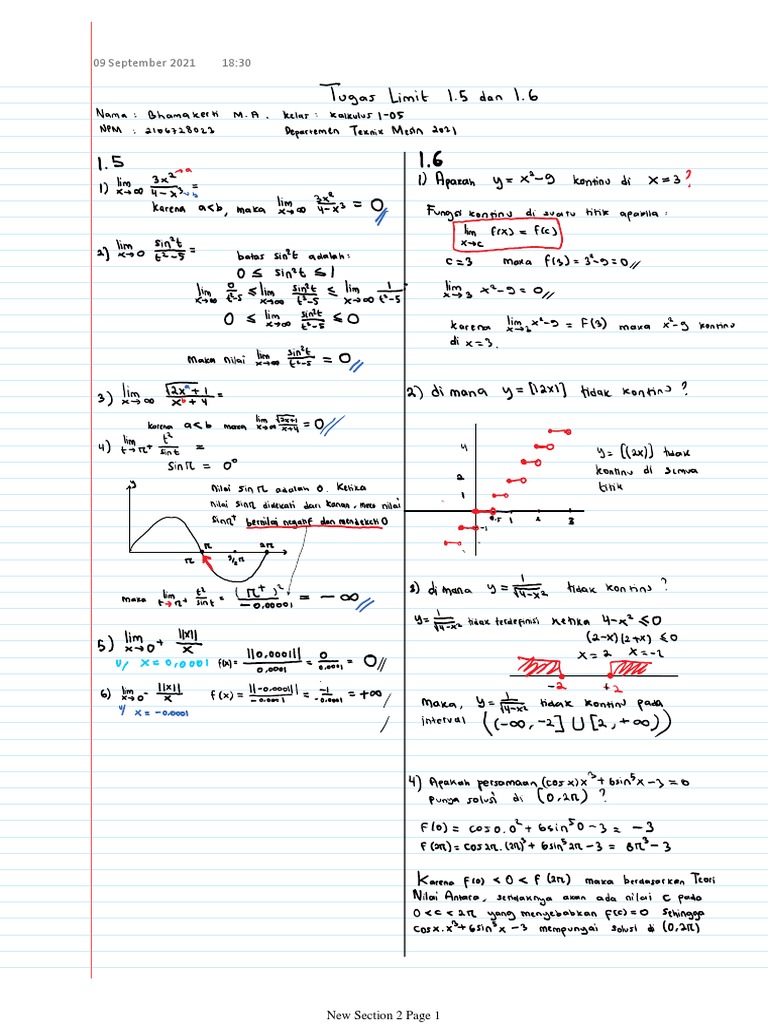 09 September 2021 18:30
Tugas Limit 1.5 dan 1.6
Nama : Bhamakerti M.A. Kelas : Kalkulus 1-05
NPM : 2106728023 Departemen Teknik Mesin 2021
1.5
1) lim x→∞ 3x²/4-x³ =
→a
→b
karena a<b, maka lim x→∞ 3x²/4-x³ = 0
2) lim x→0 sin²t/t²-5 =
batas sin²t adalah:
0 ≤ sin²t ≤ 1
lim x→∞ 0/t²-5 ≤ lim x→∞ sin²t/t²-5 ≤ lim x→∞ 1/t²-5
0 ≤ lim x→∞ sin²t/t²-5 ≤ 0
Maka nilai lim x→∞ sin²t/t²-5 = 0
3) lim x→∞ √2x^a+1/x^b+4 =
karena a<b maka lim x→∞ √2x+1/x+4 = 0
4) lim t→π+ t²/sint =
sin π = 0°
y
Nilai sin π adalah 0. Ketika
nilai sin π didekati dari kanan, maka nilai
sin π+ bernilai negatif dan mendekati 0
π 3/2π 2π
maka lim t→π+ t²/sint = (π+)²/-0,00001 = -∞
5) lim x→0+ ||x||/x
u/ x = 0,0001 f(x) = ||0,0001||/0,0001 = 0/0,0001 = 0
6) lim x→0- ||x||/x f(x) = ||-0.0001||/-0.0001 = -1/-0.0001 = +∞
u/ x = -0.0001
1.6
1) Apakah y = x²-9 kontinu di x = 3?
Fungsi kontinu di suatu titik apabila :
lim x→c f(x) = f(c)
c = 3 maka f(3) = 3²-9 = 0
lim x→3 x²-9 = 0
karena lim x→3 x²-9 = F(3) maka x²-9 kontinu
di x = 3.
2) di mana y = [|2x|] tidak kontinu ?
4
2
1
0.5 1 2 3
-1
y = [(2x)] tidak
kontinu di semua
titik
3) di mana y = 1/√4-x² tidak kontinu ?
y = 1/√4-x² tidak terdefinisi ketika 4-x² ≤ 0
(2-x)(2+x) ≤ 0
x = 2 x = -2
-2 +2
Maka, y = 1/√4-x² tidak kontinu pada
interval ((-∞, -2] ∪ [2, +∞))
4) Apakah persamaan (cos x) x³ + 6 sin⁵x - 3 = 0
punya solusi di (0, 2π) ?
F(0) = cos 0. 0² + 6 sin⁵ 0 - 3 = -3
F(2π) = cos 2π. (2π)³ + 6 sin⁵ 2π - 3 = 8π³ - 3
Karena f(0) < 0 < f(2π) maka berdasarkan Teori
Nilai Antara, seridaknya akan ada nilai c pada
0 < c < 2π yang menyebabkan f(c) = 0 sehingga
cosx. x³ + 6sin⁵x - 3 mempunyai solusi di (0, 2π)
New Section 2 Page 1